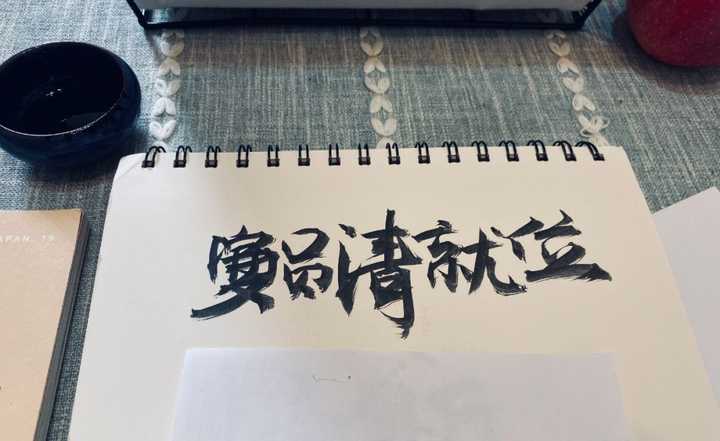 演员请就位
APAN. 19